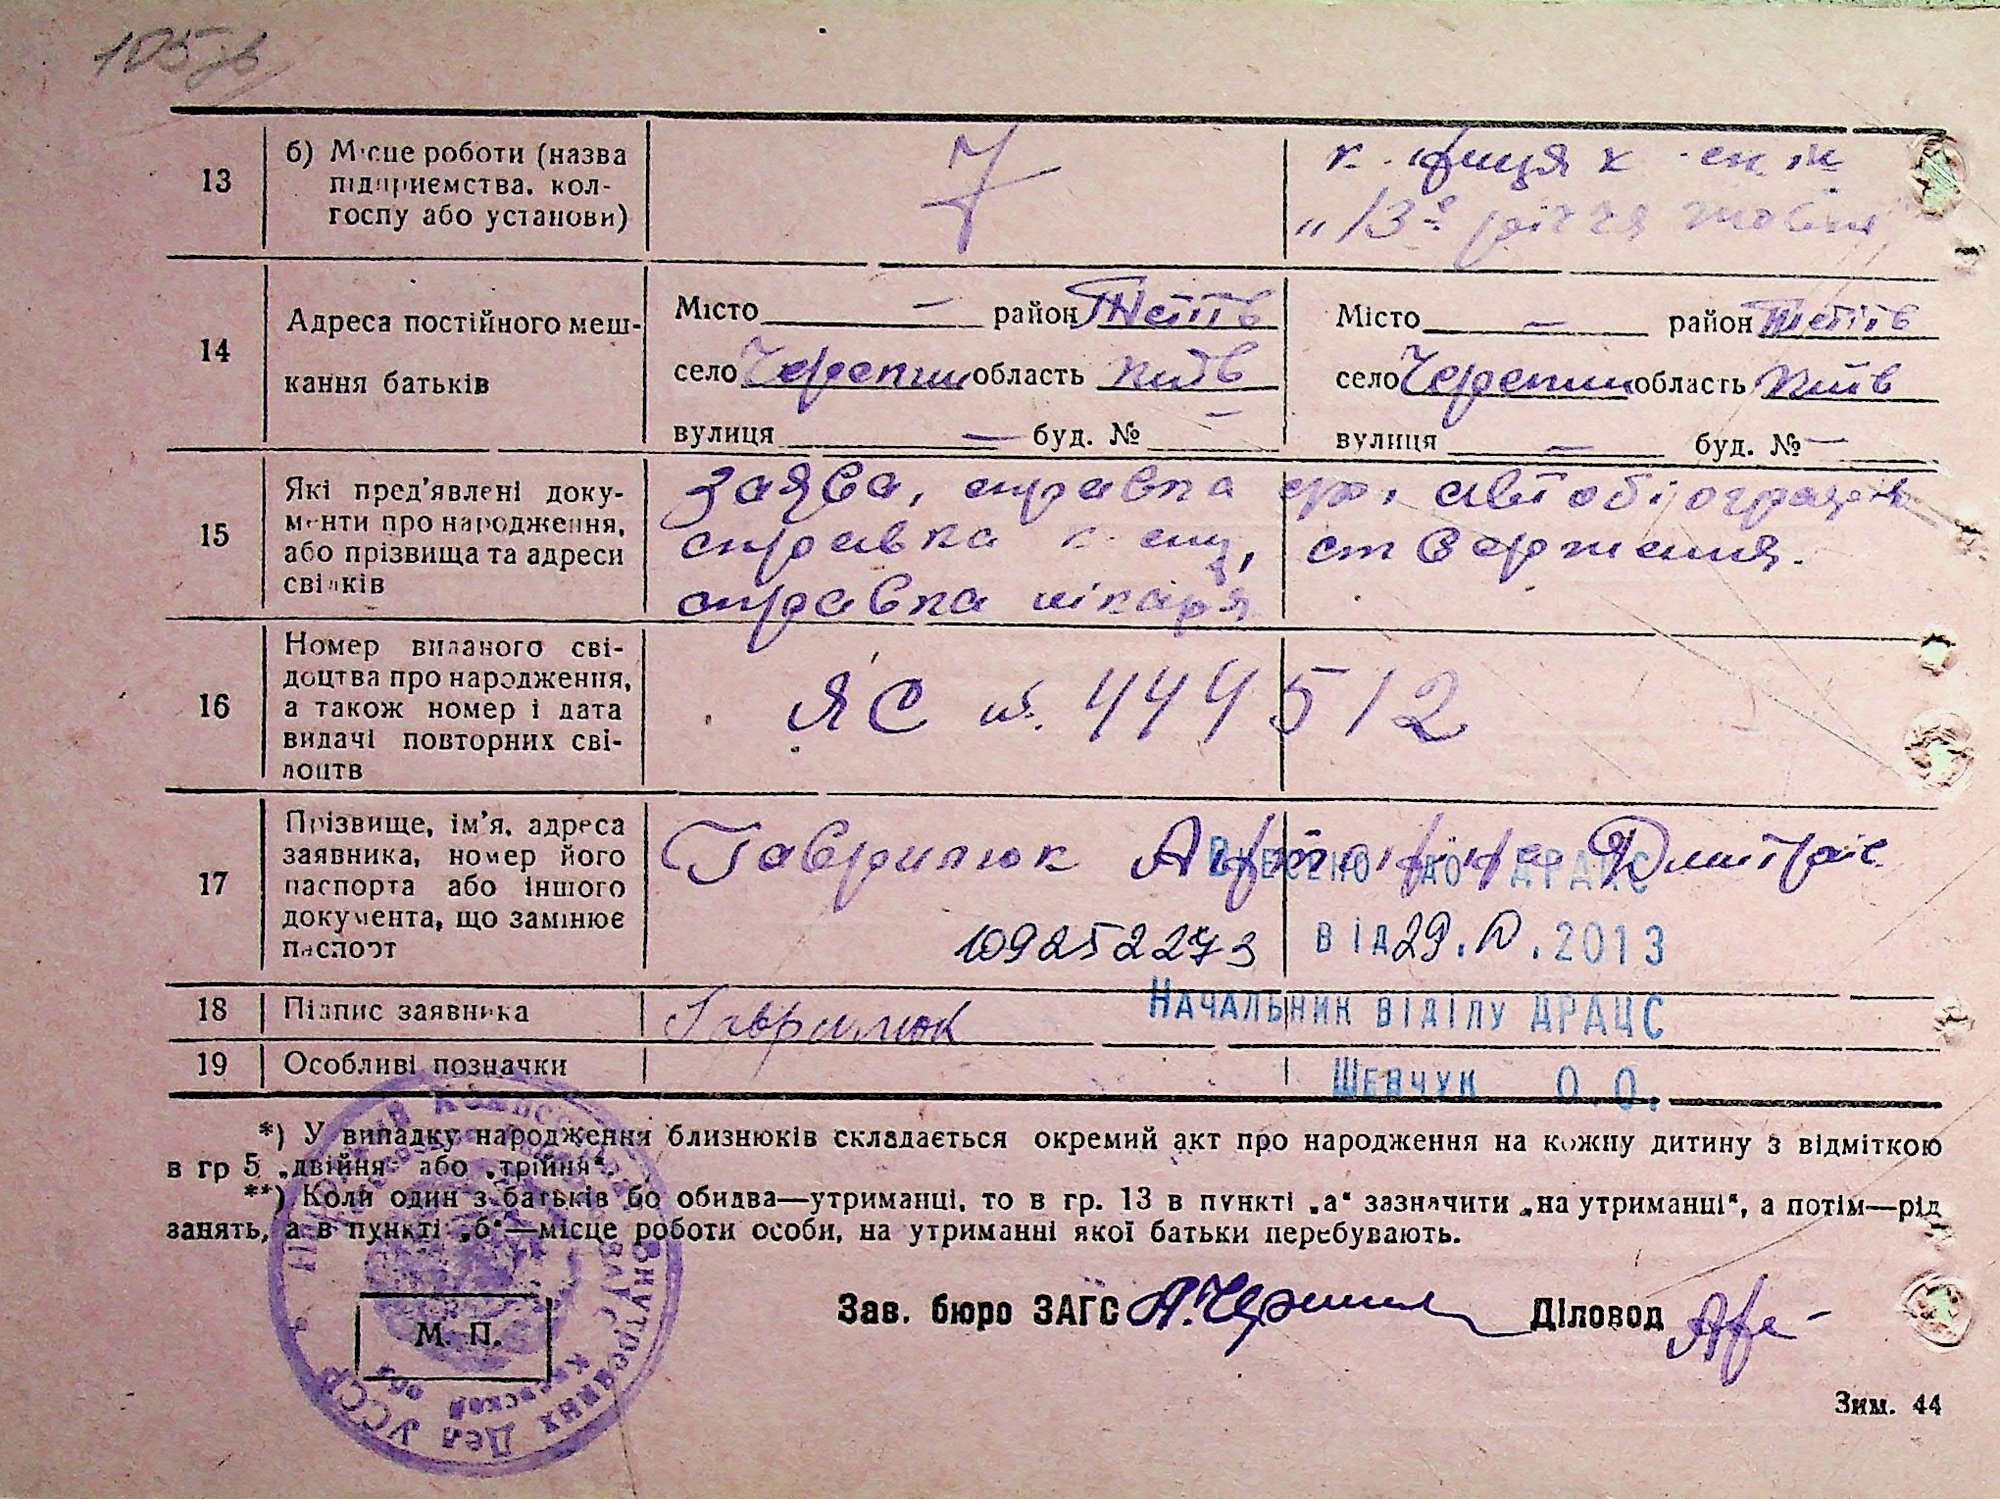 105зв
13
б) Місце роботи (назва
підприємства, кол-
госпу або установи)
"13е річчя
14
Адреса постійного меш-
кання батьків
Місто — район Тетіїв
село Черепин область Київ
вулиця — буд. № —
Місто — район Тетіїв
село Черепин область Київ
вулиця — буд. № —
15
Які пред'явлені доку-
менти про народження,
або прізвища та адреси
свідків
Заява, справка с/р, автобіография
справка к-спу, ствержения.
справка лікаря
16
Номер виданого сві-
доцтва про народження,
а також номер і дата
видачі повторних сві-
доцтв
ЯС №. 444512
17
Прізвище, ім'я, адреса
заявника, номер його
паспорта або іншого
документа, що замінює
паспорт
Гаврилюк Дмитрів
Внесено до ДРАЦС
109252273
від 29.10.2013
18
Підпис заявника
Гаврилюк
Начальник відділу ДРАЦС
19
Особливі позначки
Шевчук О.О.
*) У випадку народження близнюків складається окремий акт про народження на кожну дитину з відміткою
в гр 5 „двійня" або „трійня".
**) Коли один з батьків бо обидва—утриманці, то в гр. 13 в пункті „а" зазначити „на утриманці", а потім—рід
занять, а в пункті „б"—місце роботи особи, на утриманні якої батьки перебувають.
Зав. бюро ЗАГС
Діловод
М. П.
Внутренних Дел УССР
Киевской обл
Зим. 44